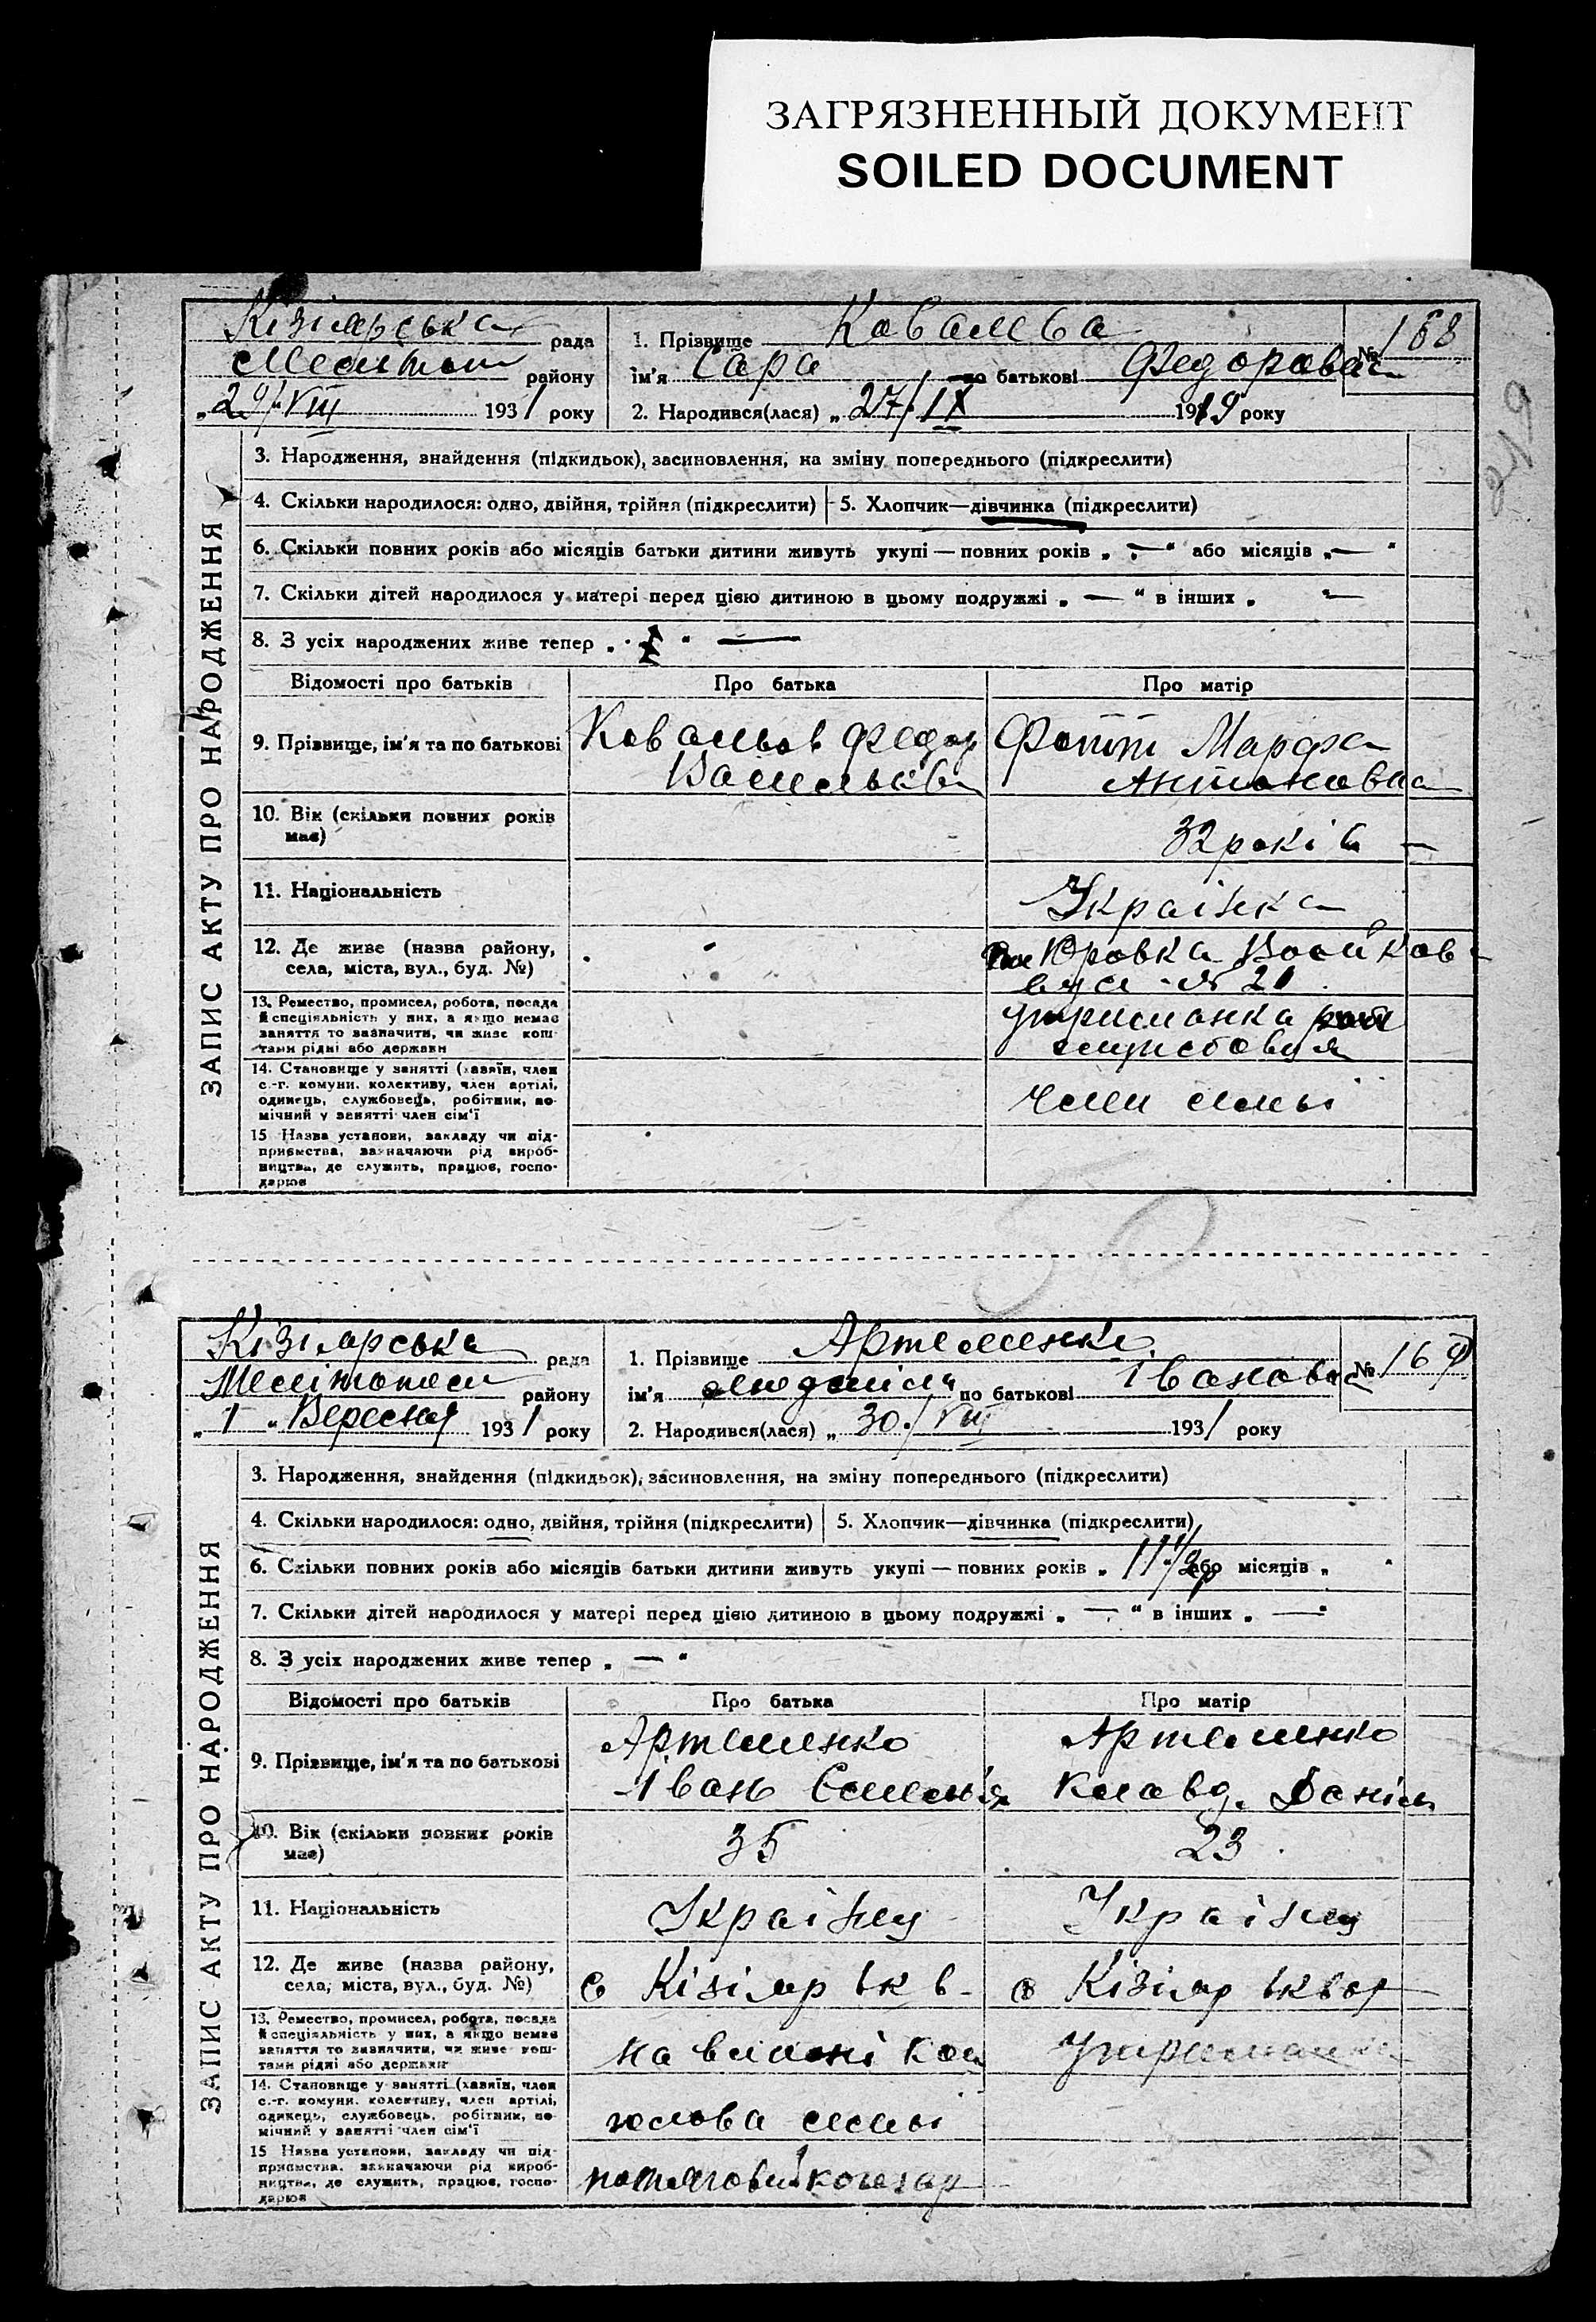 ЗАГРЯЗНЕННЫЙ ДОКУМЕНТ
SOILED DOCUMENT
Кізіярська рада
Меліто району
„29/VIII 1931 року
1. Прізвище Ковальова
ім'я Сара по батькові Федоровна
2. Народився(лася) „27/IX 1919 року
№ 168
219
ЗАПИС АКТУ ПРО НАРОДЖЕННЯ
3. Народження, знайдення (підкидьок), засиновлення, на зміну попереднього (підкреслити)
4. Скільки народилося: одно, двійня, трійня (підкреслити) 5. Хлопчик—дівчинка (підкреслити)
6. Скільки повних років або місяців батьки дитини живуть укупі — повних років „ — “ або місяців „ — “
7. Скільки дітей народилося у матері перед цією дитиною в цьому подружжі „ — “ в інших „ —
8. З усіх народжених живе тепер „ “ —
Відомості про батьків Про батька Про матір
9. Прізвище, ім'я та по батькові Ковальов Федор Фотт Марфа
Антоновна
10. Вік (скільки повних років має) 32 років
11. Національність Українка
12. Де живе (назва району, села, міста, вул., буд. №) Юровка
№ 21
13. Ремество, промисел, робота, посада
й спеціяльність у них, а якщо немає
заняття то зазначити, чи живе кош-
тами рідні або держави
утриманка
14. Становище у занятті (хазяїн, член
с.-г. комуни, колективу, член артілі,
одинець, службовець, робітник, по-
мічний у занятті член сім'ї
член семьї
15 Назва установи, закладу чи під-
приємства, зазначаючи рід вироб-
ництва, де служить, працює, госпо-
дарює
50
Кізіярська рада
Мелітопол району
„ 1 “ Вересня 1931 року
1. Прізвище Артеменко
ім'я по батькові Івановна
2. Народився(лася) „ 30/VIII 1931 року
№ 169
ЗАПИС АКТУ ПРО НАРОДЖЕННЯ
3. Народження, знайдення (підкидьок), засиновлення, на зміну попереднього (підкреслити)
4. Скільки народилося: одно, двійня, трійня (підкреслити) 5. Хлопчик—дівчинка (підкреслити)
6. Скільки повних років або місяців батьки дитини живуть укупі — повних років „ 1 1/2 р або місяців „ “
7. Скільки дітей народилося у матері перед цією дитиною в цьому подружжі „ — “ в інших „ — “
8. З усіх народжених живе тепер „ — “
Відомості про батьків Про батька Про матір
9. Прізвище, ім'я та по батькові Артеменко Артеменко
Іван Клавд. Даніл
10. Вік (скільки повних років має) 35 23
11. Національність Українец Українец
12. Де живе (назва району, села, міста, вул., буд. №) с Кізіяр с Кізіяр
13. Ремество, промисел, робота, посада
й спеціяльність у них, а якщо немає
заняття то зазначити, чи живе кош-
тами рідні або держави
на власні кош утриманка
14. Становище у занятті (хазяїн, член
с.-г. комуни, колективу, член артілі,
одинець, службовець, робітник, по-
мічний у занятті член сім'ї
голова семьї
15 Назва установи, закладу чи під-
приємства, зазначаючи рід вироб-
ництва, де служить, працює, госпо-
дарює
потяговий кочегар